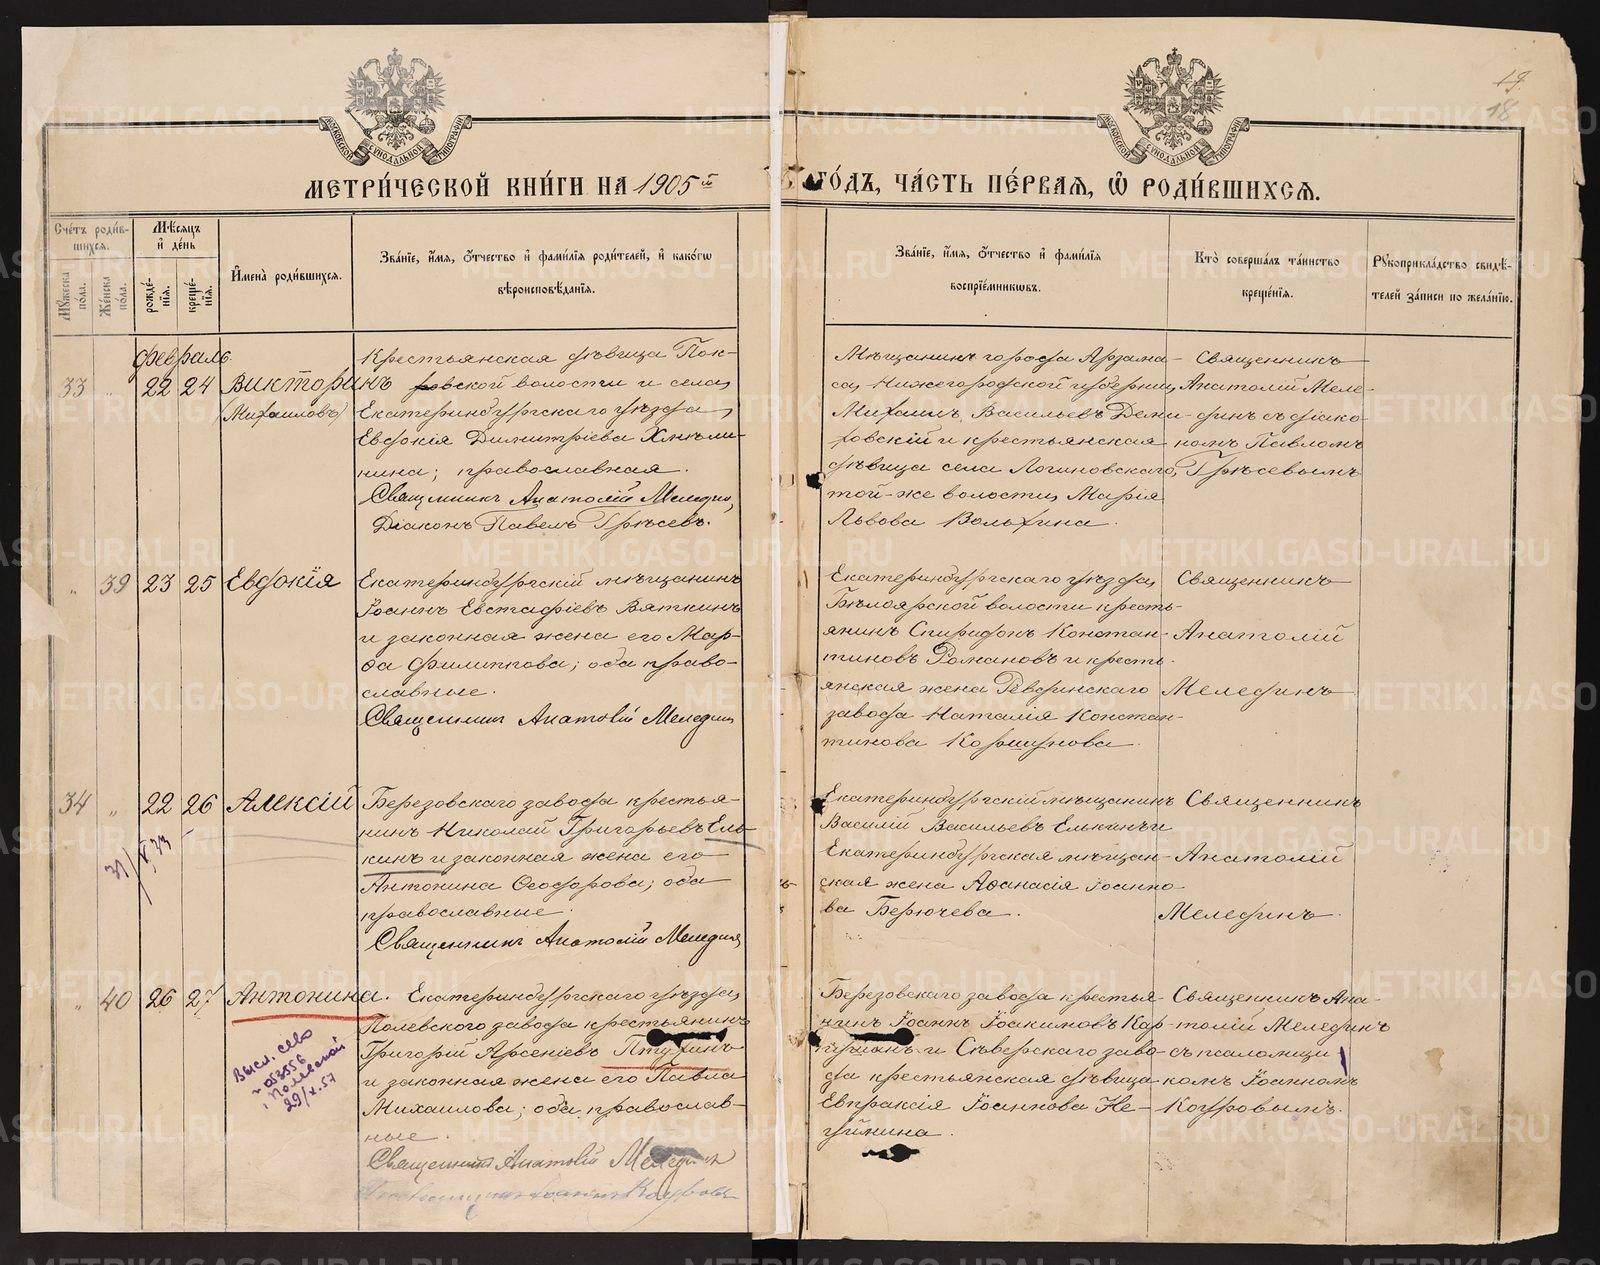 19.
18
МОСКОВСКОЙ СѴНОДАЛЬНОЙ ТИПОГРАФІИ
МОСКОВСКОЙ СѴНОДАЛЬНОЙ ТИПОГРАФІИ
МЕТРИ́ЧЕСКОЙ КНИ́ГИ НА 1905й
ГО́ДЪ, ЧА́СТЬ ПЕ́РВАѦ, Ѡ҆ РОДИ́ВШИХСѦ.
Сче́тъ роди́вшихсѧ.
Мꙋ́жеска по́ла.
Же́нска по́ла.
Мѣ́сѧцъ и҆ де́нь
рожде́нїѧ.
креще́нїѧ.
И҆мена̀ роди́вшихсѧ.
Зва́нїе, и҆́мѧ, ѻ҆́тчество и҆ фами́лїѧ роди́телей, и҆ како́гѡ
вѣроисповѣ́данїѧ.
Зва́нїе, и҆́мѧ, ѻ҆́тчество и҆ фами́лїѧ
воспрїе́мникѡвъ.
Кто̀ соверша́лъ та́инство
креще́нїѧ.
Рꙋкоприкла́дство свидѣ́-
телей за́писи по жела́нїю.
Февраль
33 " 22 24 Викторинъ
(Михаиловъ)
Крестьянская дѣвица Пок-
ровской волости и села,
Екатеринбургскаго уѣзда,
Евдокія Димитріева Хмѣли-
нина; православная.
Священникъ Анатолій Меледин,
Діаконъ Павелъ Грѣсевъ.
Мѣщанинъ города Арзама-
са, Нижегородской губерніи,
Михаилъ Васильевъ Деми-
ховскій и крестьянская
дѣвица села Логиновскаго,
той-же волости, Марія
Львова Вольхина.
Священникъ
Анатолій Меле-
динъ съ діако-
номъ Павломъ
Грѣсевымъ
" 39 23 25 Евдокія
Екатеринбургскій мѣщанинъ
Іоаннъ Евстафіевъ Вяткинъ
и законная жена его Мар-
ѳа Филиппова; оба право-
славные.
Священникъ Анатолій Меледин
Екатеринбургскаго уѣзда,
Бѣлоярской волости кресть-
янинъ Спиридонъ Констан-
тиновъ Романовъ и кресть-
янская жена Ревдинскаго
завода Наталія Констан-
тинова Коршунова.
Священникъ
Анатолій
Мелединъ
34 " 22 26 Алексій
Березовскаго завода крестья-
нинъ Николай Григорьевъ Ель-
кинъ и законная жена его
Антонина Ѳеодорова; оба
православные.
Священникъ Анатолій Меледин
Екатеринбургскій мѣщанинъ
Василій Васильевъ Елькинъ и
Екатеринбургская мѣщан-
ская жена Аѳанасія Іоанно-
ва Берючева.
Священникъ
Анатолій
Мелединъ.
" 40 26 27 Антонина.
Екатеринбургскаго уѣзда,
Полевского завода крестьянинъ
Григорій Арсеніевъ Птухинъ
и законная жена его Павла
Михаилова; оба православ-
ные.
Священникъ Анатолій Меледин
Березовскаго завода крестья-
нинъ Іоаннъ Іоакимовъ Кар-
и Сѣверскаго заво-
да крестьянская дѣвица
Евпраксія Іоаннова Не-
уймина.
Священникъ Ана-
толій Мелединъ
съ псаломщи
комъ Іоанномъ
Когровымъ.
Высл. св-во
29/X.57